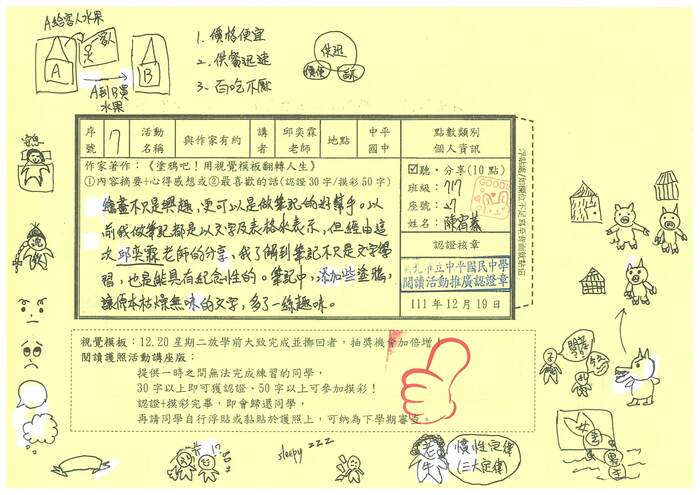 A給客人水果
客人
A
B
A到B買
水果
1. 價格便宜
2. 供餐迅速
3. 百吃不厭
供迅
價便
序號
7
活動名稱
與作家有約
講者
邱奕霖老師
地點
中平國中
點數類別
個人資訊
作家著作：《塗鴉吧！用視覺模板翻轉人生》
①內容摘要+心得感想或②最喜歡的話(認證30字/摸彩50字)
繪畫不只是興趣，更可以是做筆記的好幫手。以
前我做筆記都是以文字及表格來表示，但經由這
次邱奕霖老師的分享，我了解到筆記不只是文字學
習，也是能具有紀念性的。筆記中，添加些塗鴉，
讓原本枯燥無味的文字，多了一絲趣味。
☑聽·分享(10點)
班級：717
座號：27
姓名：
認證核章
新北市立中平國民中學
閱讀活動推廣認證章
111年12月19日
視覺模板：12.20星期二放學前大致完成並擲回者，抽獎機會加倍增！
閱讀護照活動講座版：
提供一時之間無法完成練習的同學，
30字以上即可獲認證、50字以上可參加摸彩！
認證+摸彩完畢，即會歸還同學，
再請同學自行浮貼或黏貼於護照上，可納為下學期審查。
sleepy zzz
老牛
慣性定律
(三大定律)